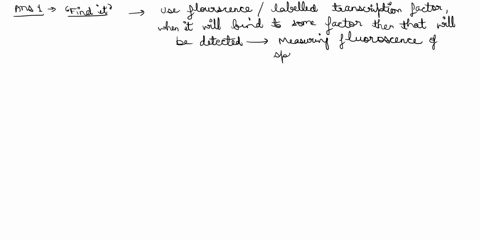 Ans 1 → "Find it" → use flourscence / labelled transcription factor,
when it will bind to some factor then that will
be detected → Measuring fluoroscence of
sp